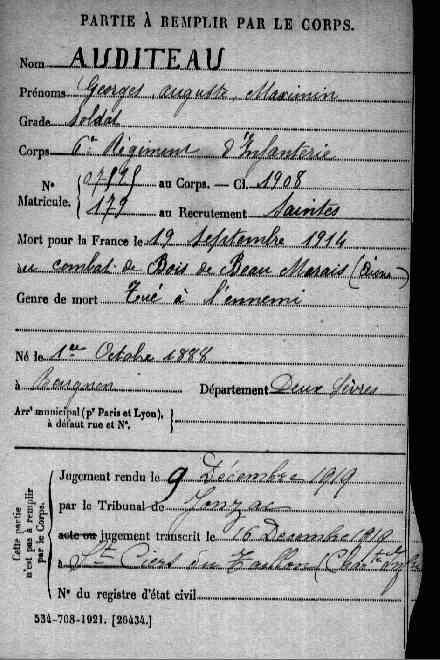 PARTIE À REMPLIR PAR LE CORPS.
Nom AUDITEAU
Prénoms Georges, Auguste, Maximin
Grade Soldat
Corps 6e Régiment d'Infanterie
N° au Corps. — Cl. 1908
Matricule. 179 au Recrutement Saintes
Mort pour la France le 19 Septembre 1914
au combat de Bois de Beau Marais (Aisne)
Genre de mort Tué à l'ennemi
Né le 1er Octobre 1888
à Département Deux Sèvres
Arrt municipal (pr Paris et Lyon),
à défaut rue et N°.
Cette partie
n'est pas à remplir
par le Corps.
Jugement rendu le 9 Décembre 1919
par le Tribunal de Jonzac
acte ou jugement transcrit le 16 Décembre 1919
à St Ciers du Taillon
N° du registre d'état civil
534-708-1921. [26434.]